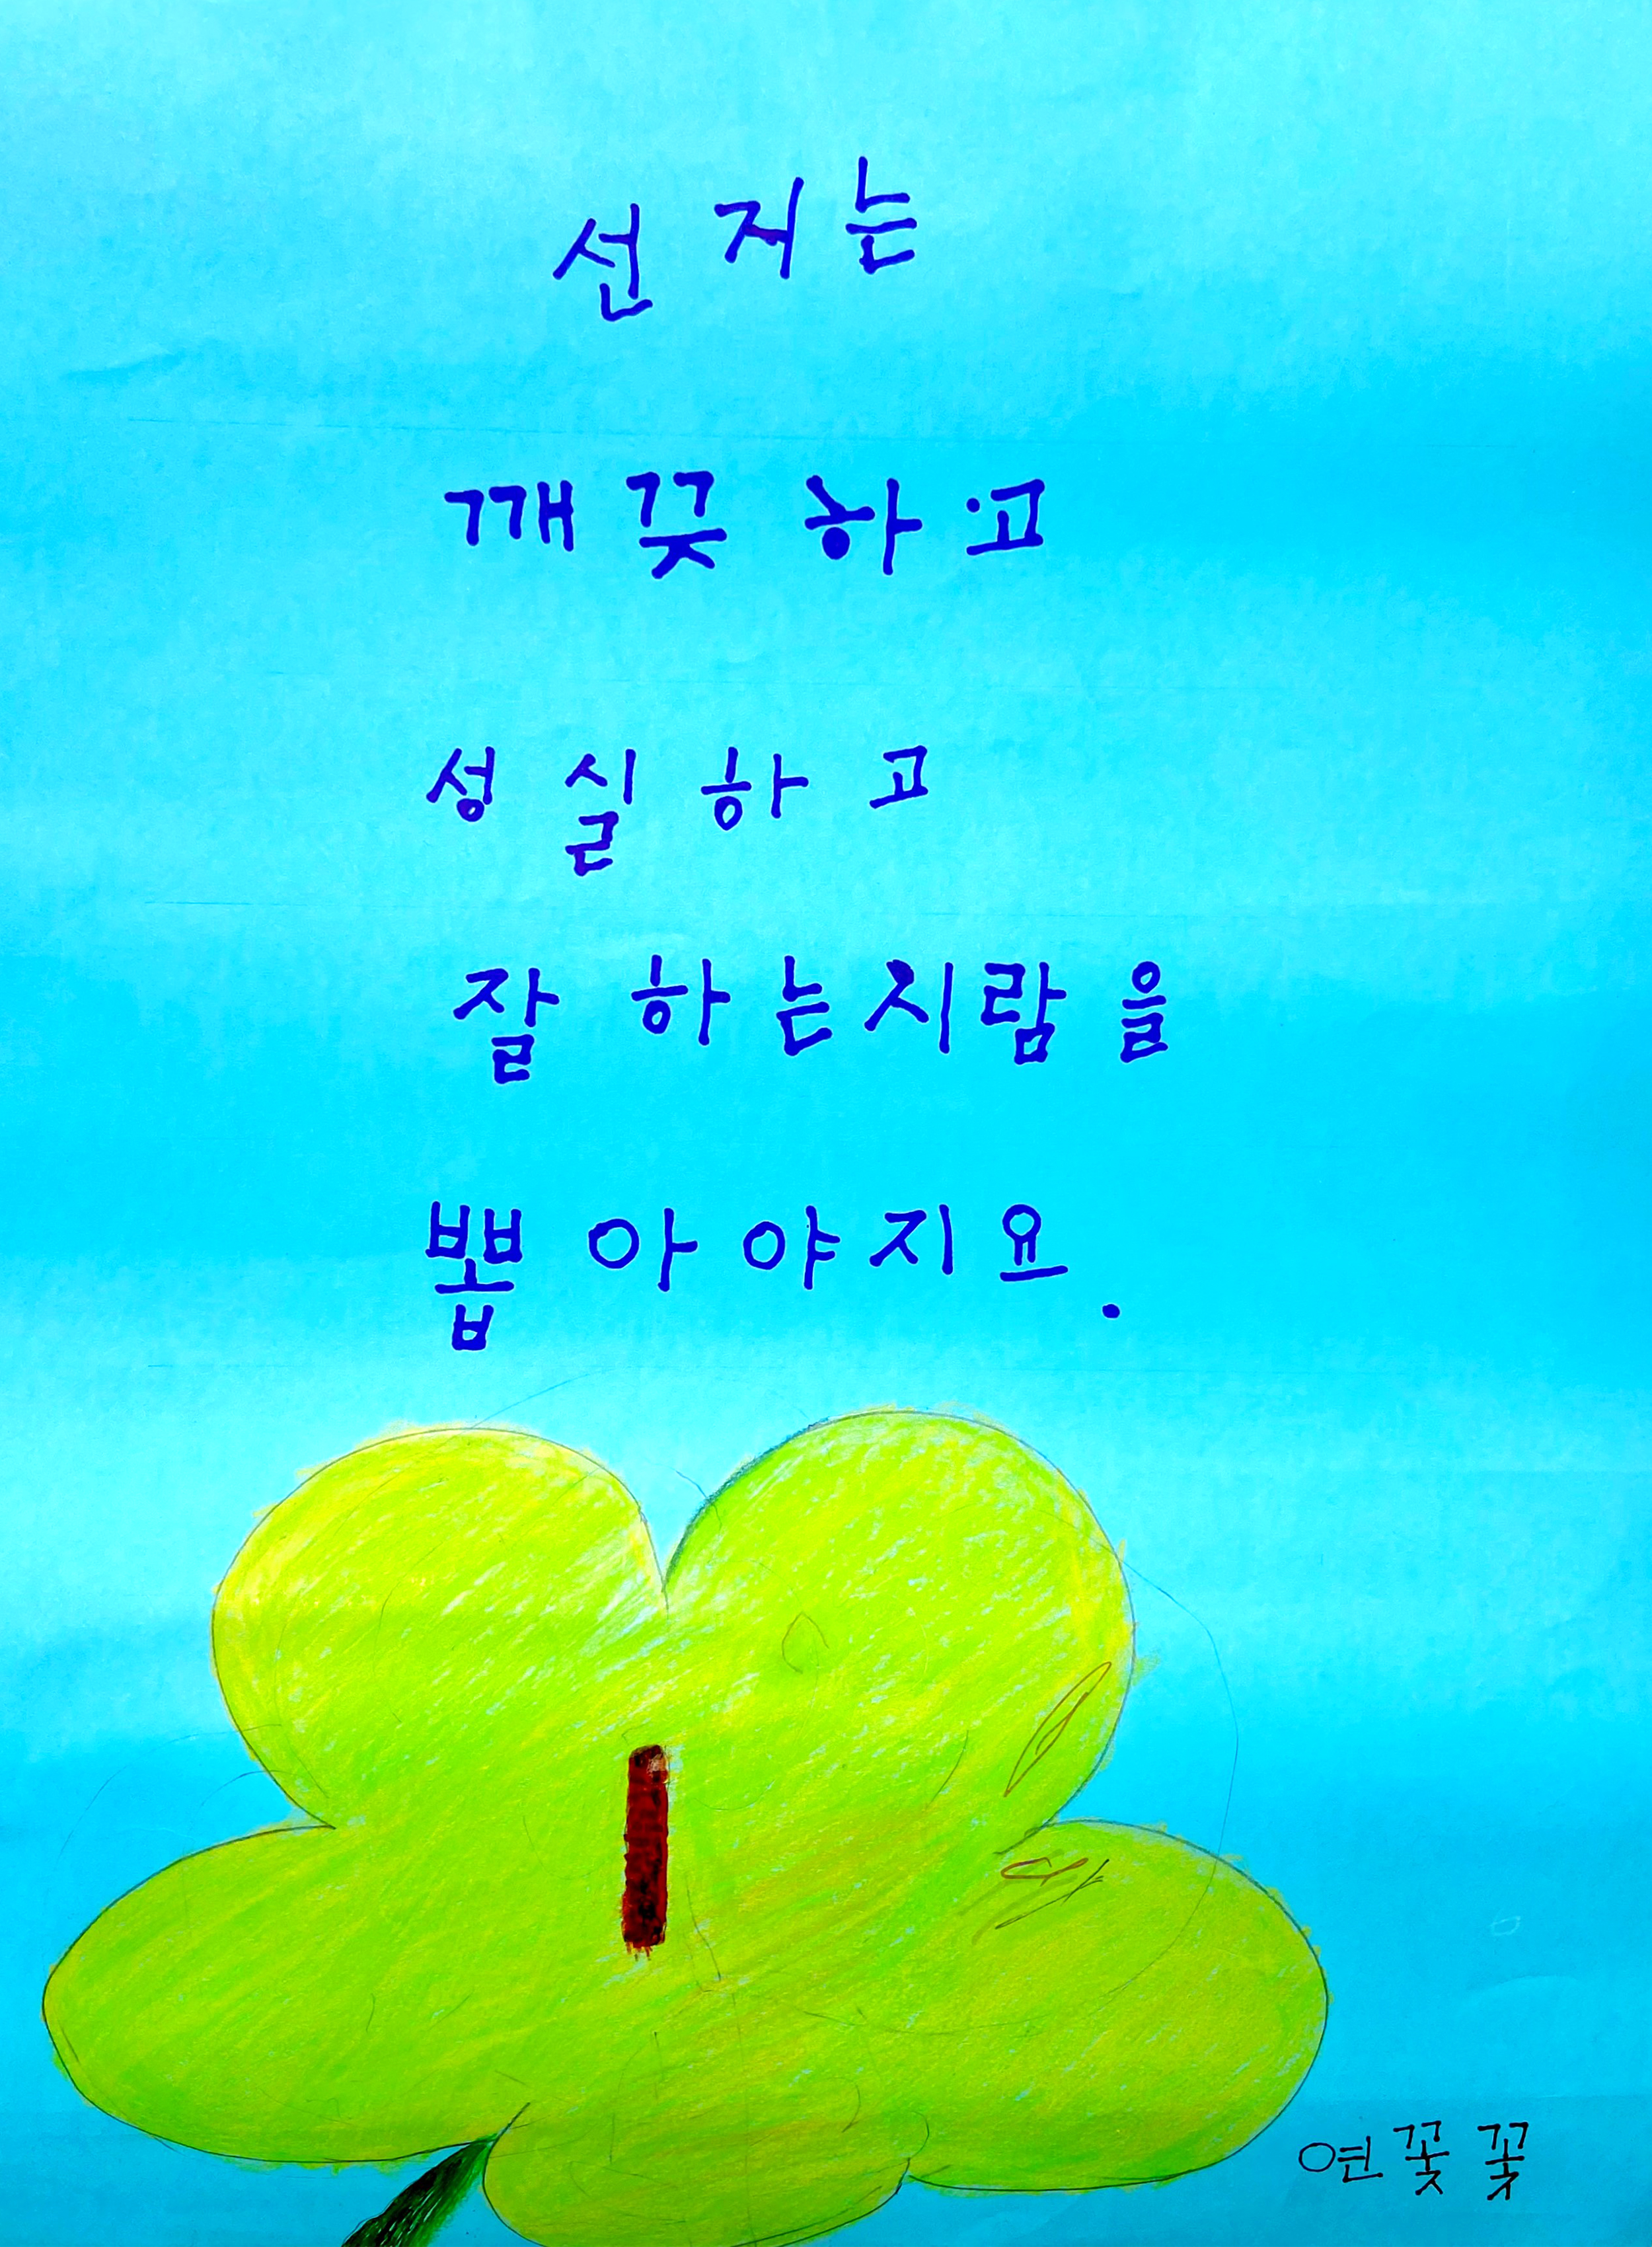 선저는
깨끚하고
성실하고
잘하는시람을
뽑아야지요.
연꽃꽃